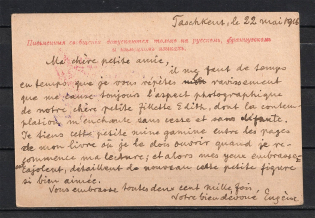 Taschkent, le 22 mai 1916
Письменныя сообщенiя допускаются только на русскомъ, французскомъ
и нѣмецкомъ языкахъ.
Ma chère petite amie,
il me faut de temps
en temps que je vous répètes mon ravissement
que me cause toujours l'aspect photographique
de notre chère petite Edith, dont la contem-
plation m'enchante sans cesse et sans
Je tiens cette petite mine gamine entre les pages
de mon livre où je le dois ouvrir quand je re-
commence ma lecture; et alors mes yeux embrasse
cajolent, détaillent de nouveau cette petite figure
si bien aimée.
Vous embrasse toutes deux cent mille fois,
Votre bien dévoué Eugène.